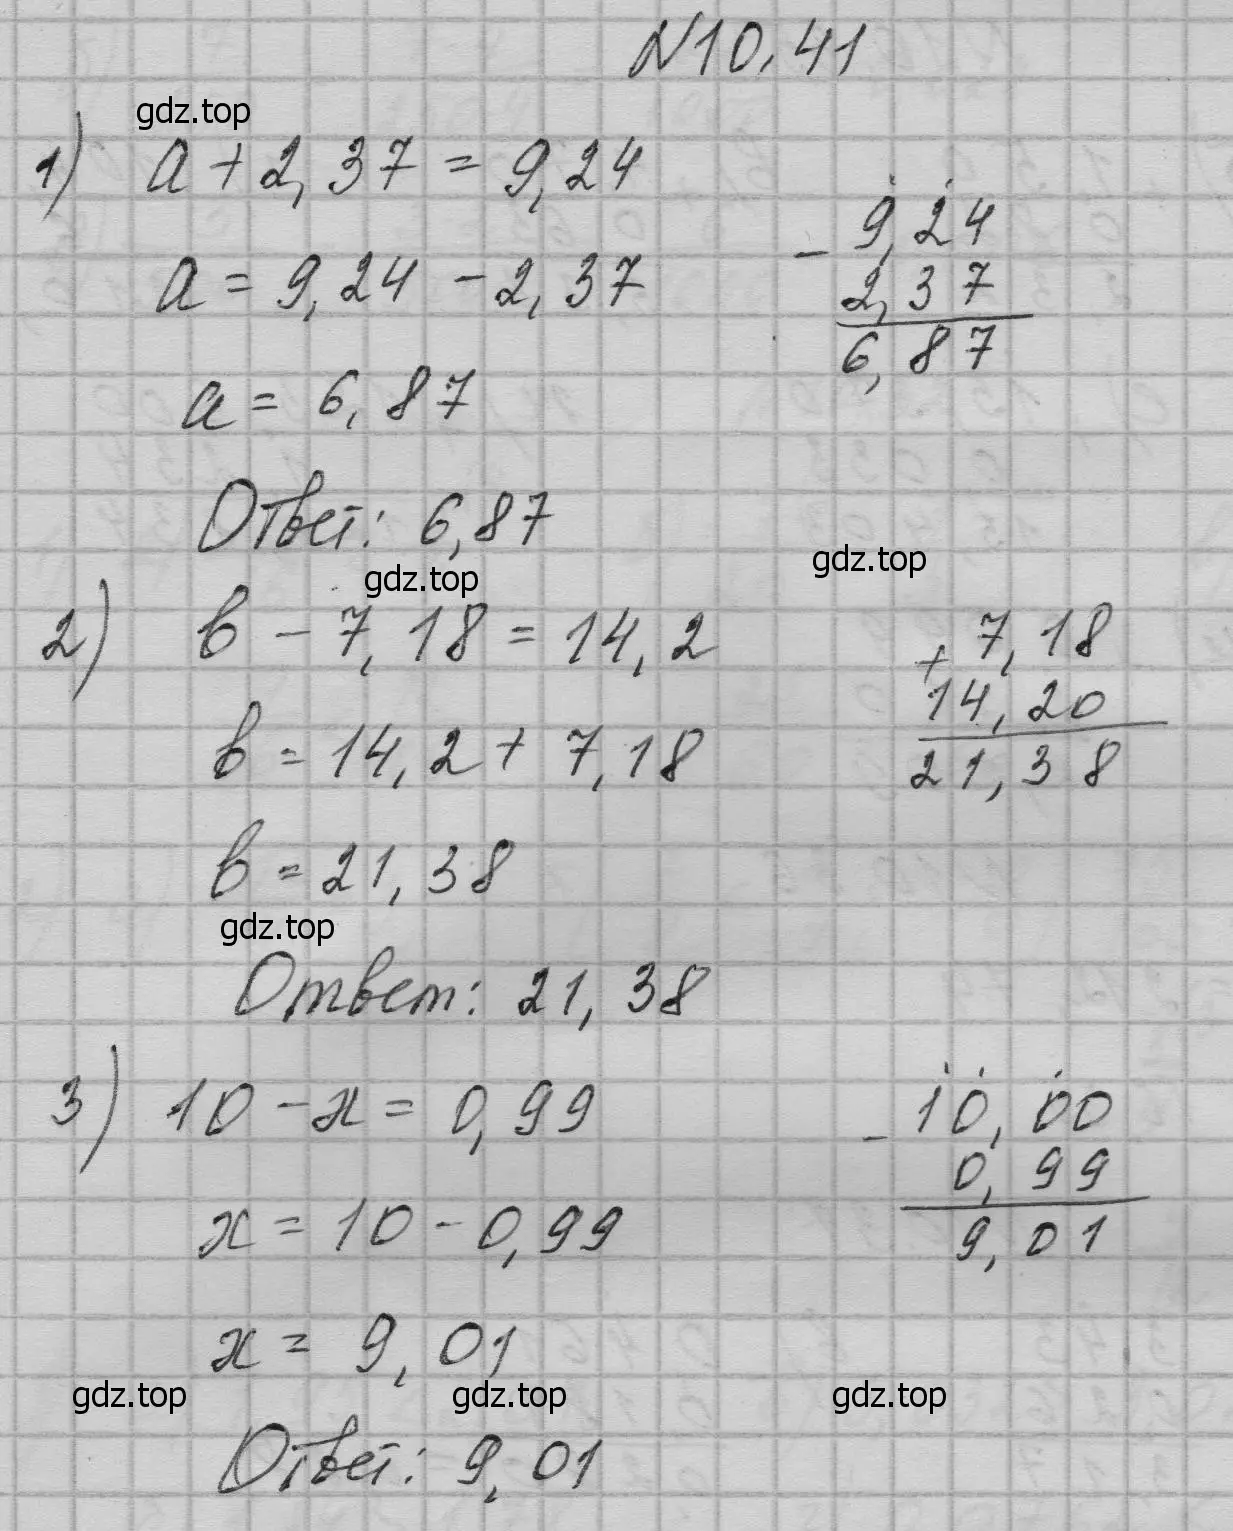 N10.41
gdz.top
1) a + 2,37 = 9,24
a = 9,24 - 2,37
a = 6,87
- 9,24
2,37
6,87
Ответ: 6,87
gdz.top
gdz.top
2) в - 7,18 = 14,2
в = 14,2 + 7,18
в = 21,38
+ 7,18
14,20
21,38
gdz.top
Ответ: 21,38
3) 10 - x = 0,99
x = 10 - 0,99
x = 9,01
- 10,00
0,99
9,01
gdz.top gdz.top gdz.top
Ответ: 9,01